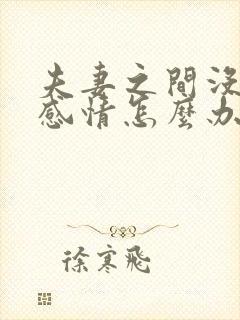 夫妻之間沒
感情怎麼办
徐寒飛